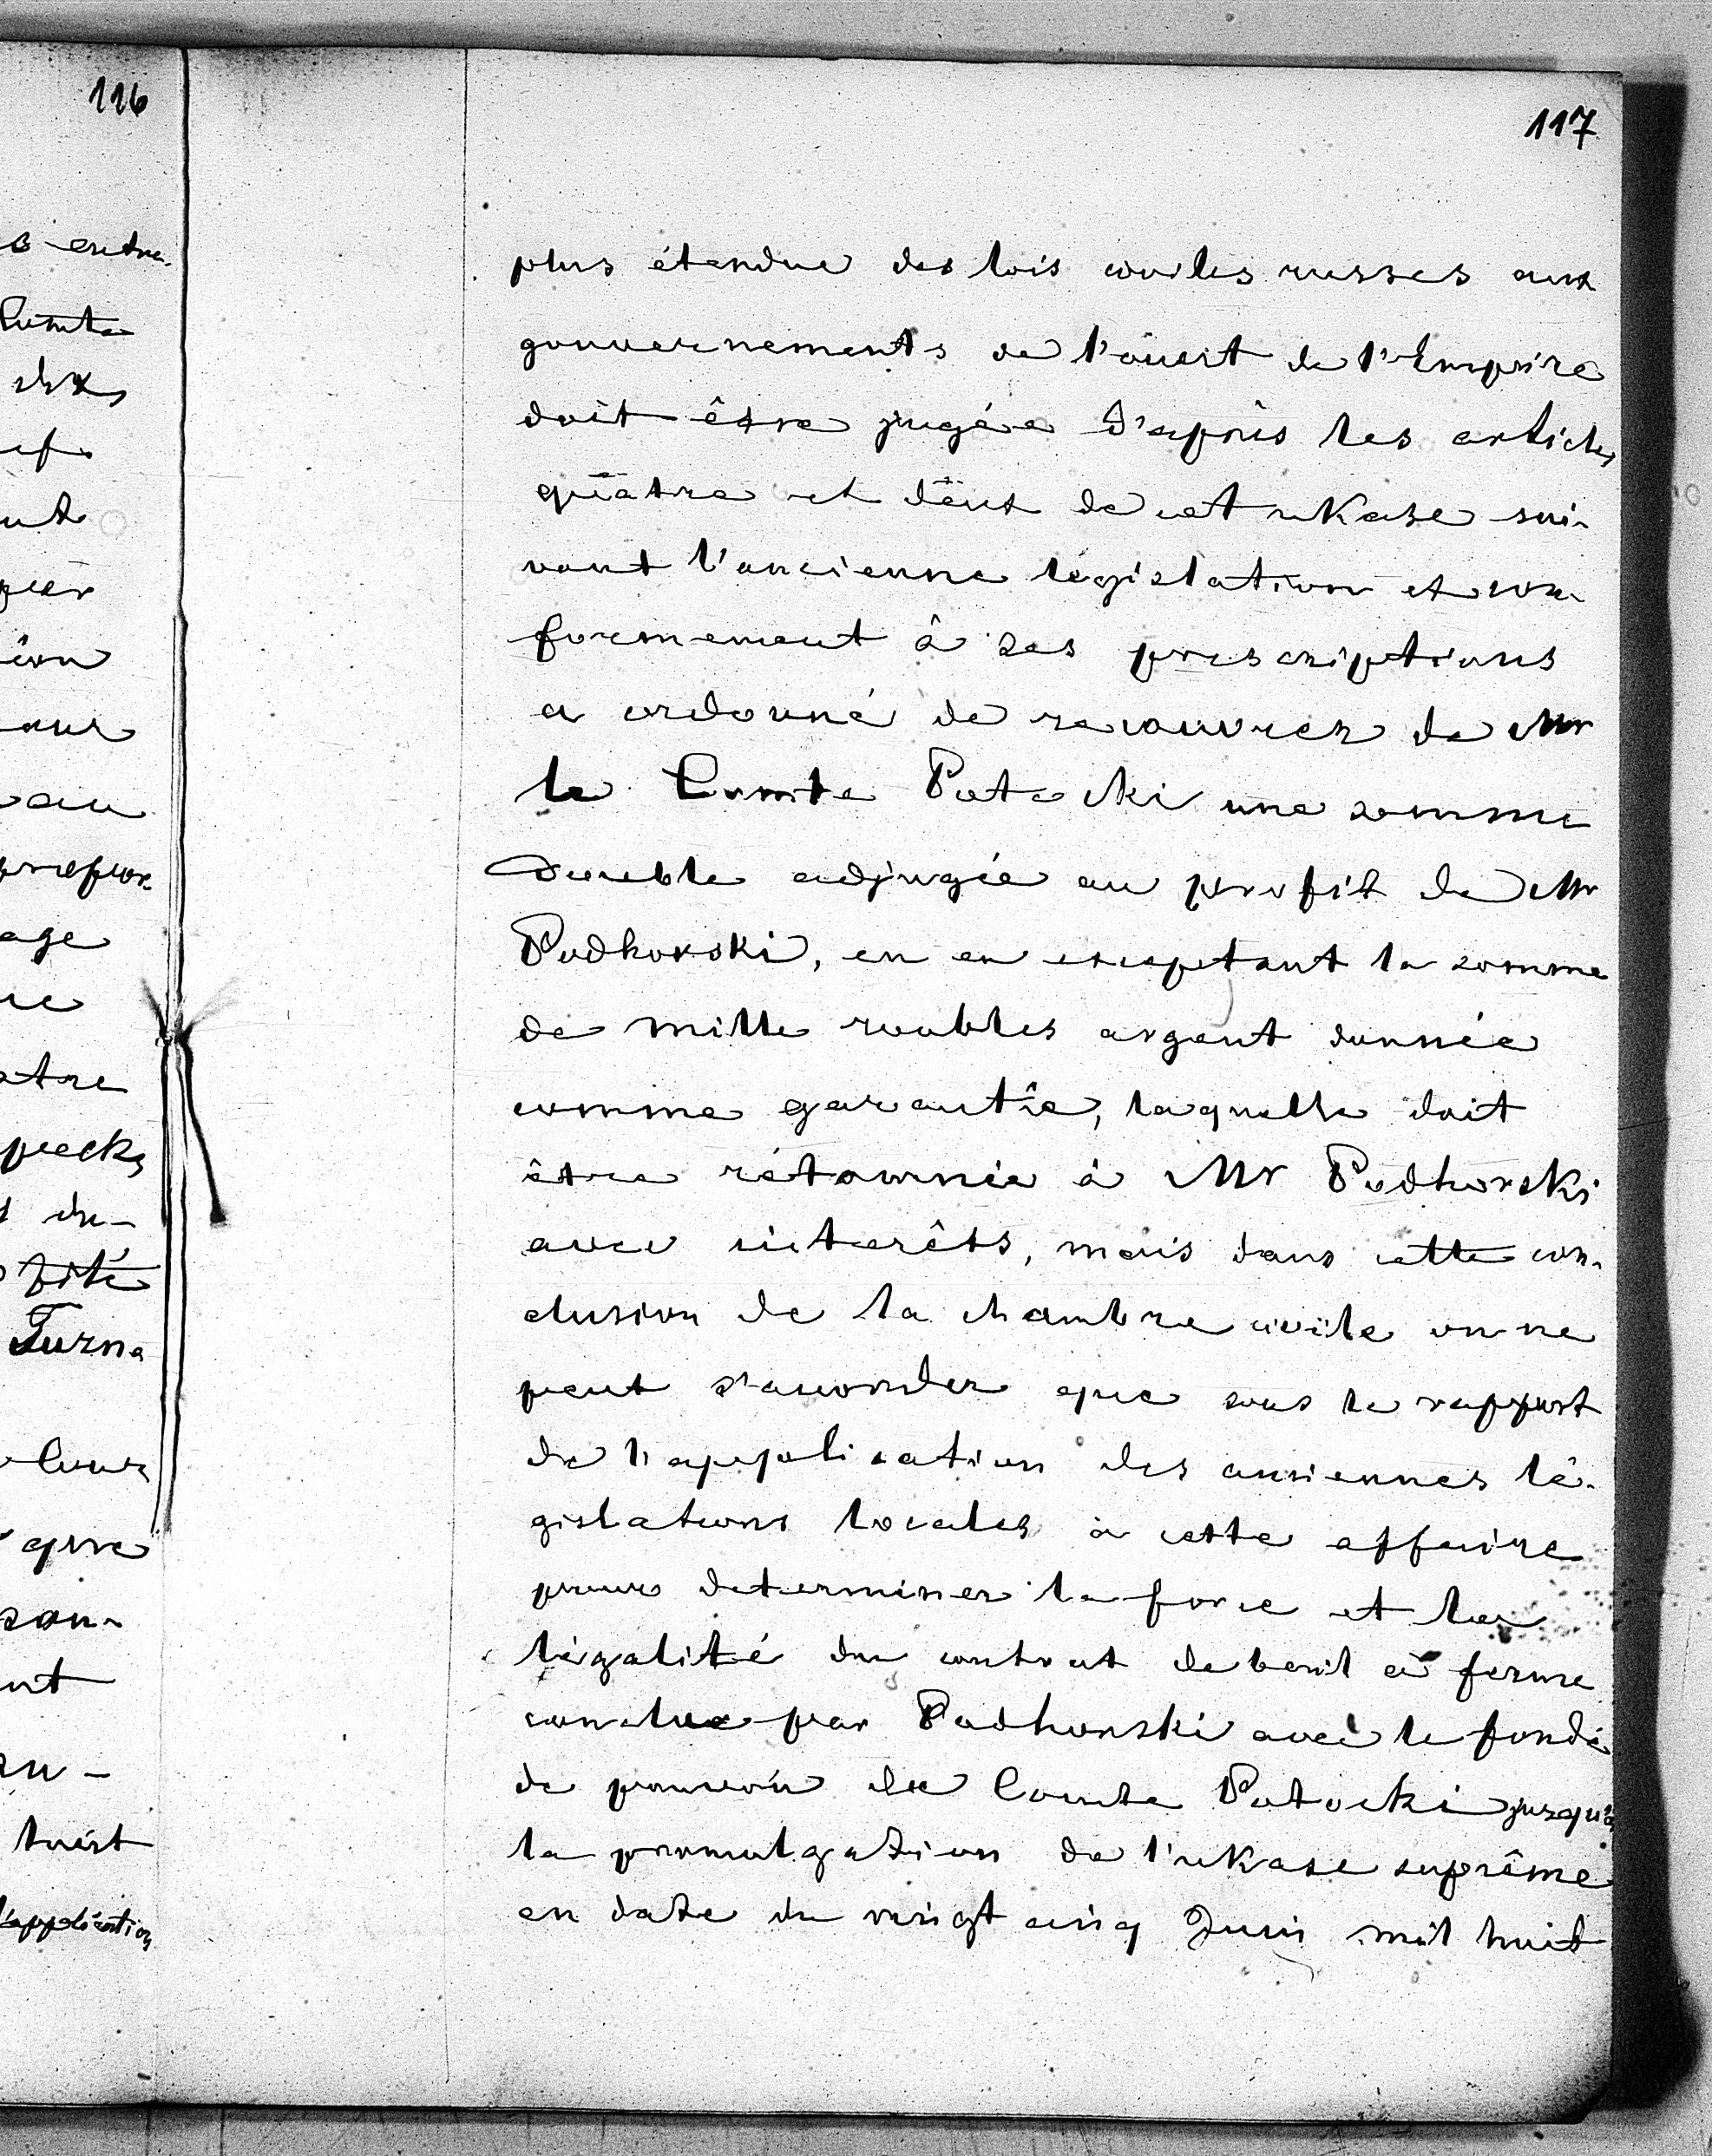 116
117
plus étendue des lois civiles russes aux
gouvernements de l'ouest de l'Empire
doit être jugée d'après les articles
quatre et deux de cet ukase sui-
vant l'ancienne législation et con-
formement à ses prescriptions
a ordonné de recouvrer de Mr
le Comte Potocki une somme
double adjugée au profit de Mr
Podhorski, en en exceptant la somme
de mille roubles argent donnée
comme garantie, laquelle doit
être rétournée à Mr Podhorski
avec interêts, mais dans cette con-
clusion de la chambre civile on ne
peut s'accorder que sous le rapport
de l'application des anciennes lé-
gislations locales à cette affaire
pour determiner la force et la
légalité du contrat de bail à ferme
conclue par Podhorski avec le fondé
de pouvoir de Comte Potocki jusqu'à
la promulgation de l'ukase suprême
en date du vingt cinq Juin mil huit